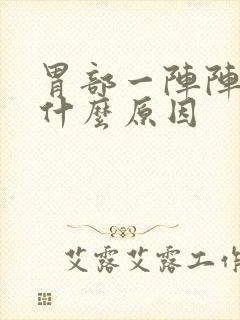 胃部一陣陣
什麼原因
艾露艾露工作